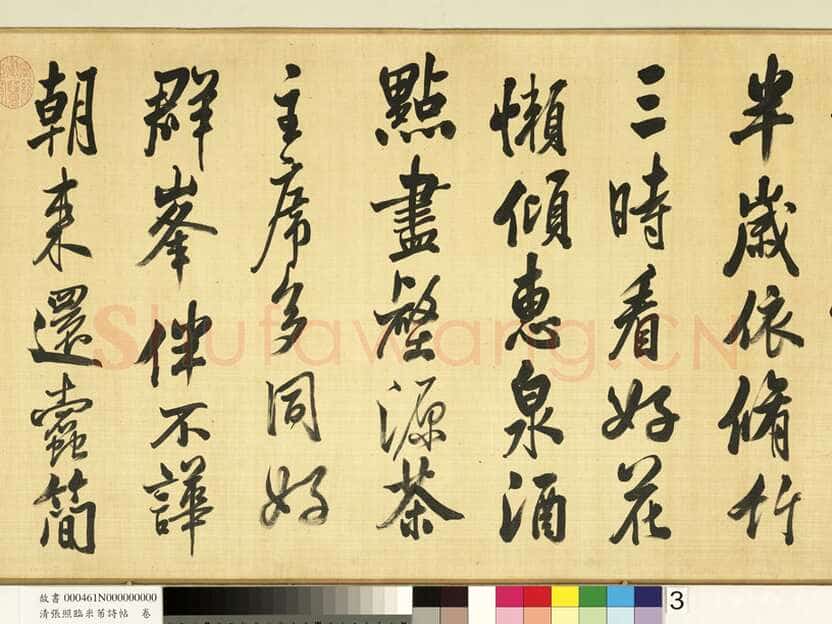 半歲依脩竹
三時看好花
懶傾惠泉酒
點盡壑源茶
主席多同好
群峯伴不譁
朝来還蠹簡
Shufawang.CN
故書 000461N000000000
清張照臨米芾詩帖 卷
3